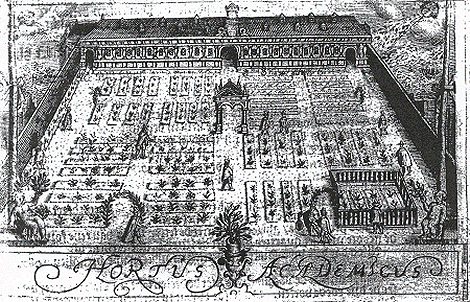 HORTUS ACADEMICUS